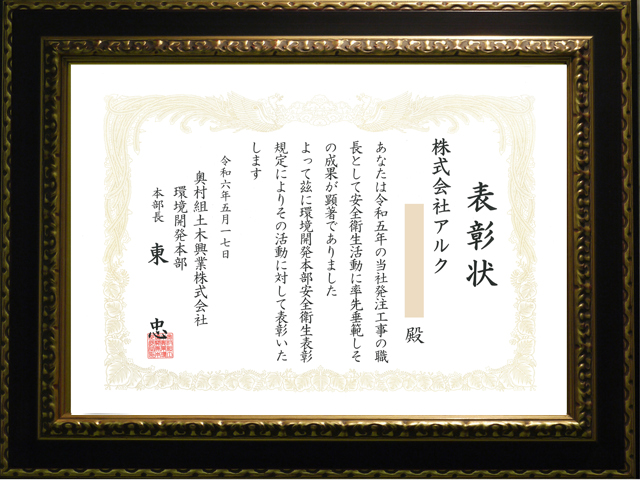 表彰状
株式会社アルク
殿
あなたは令和五年の当社発注工事の職
長として安全衛生活動に率先垂範しそ
の成果が顕著でありました
よって茲に環境開発本部安全衛生表彰
規定によりその活動に対して表彰いた
します
令和六年五月一七日
奥村組土木興業株式会社
環境開発本部
本部長 東 忠